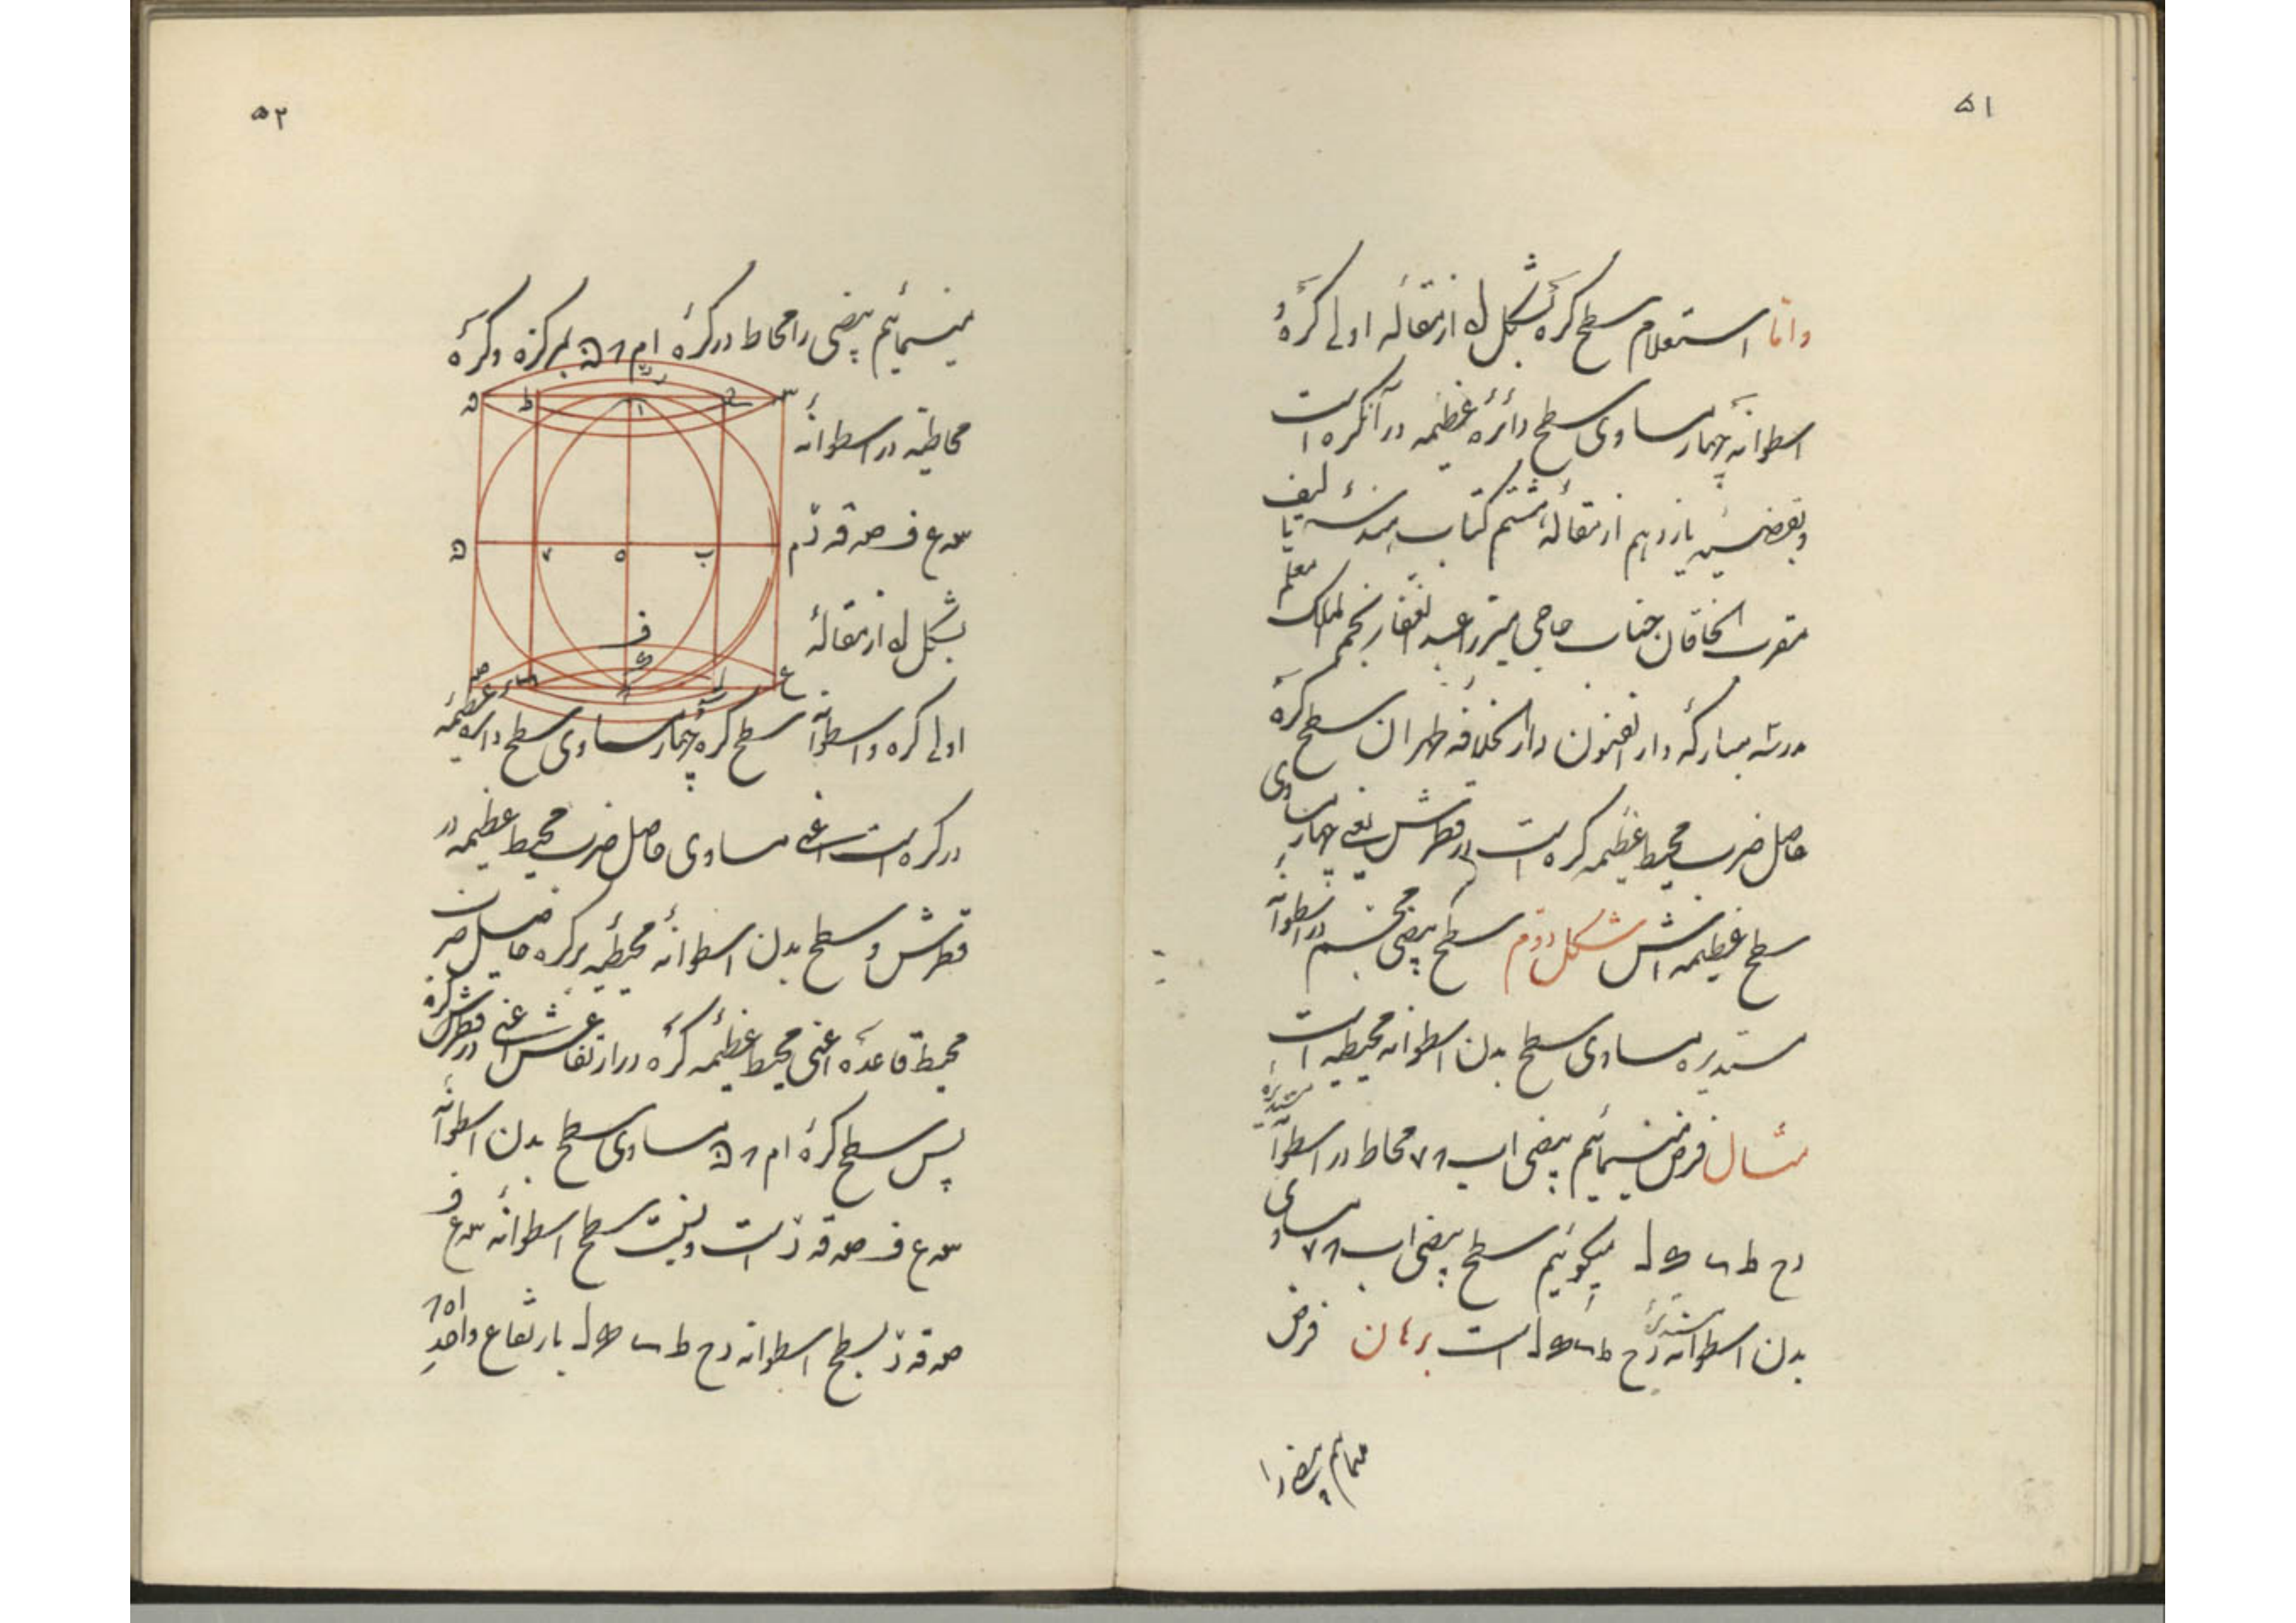 ۵۱
وامّا استعلام سطح کره بشکل له از مقاله اولی کره و
اسطوانه چهار مساوی سطح دائرهٔ عظیمه در آنکره است
و بقضیهٔ یازدهم از مقالهٔ هشتم کتاب هندسه تألیف
مقرب الخاقان جناب حاجی میرزا عبد الغفار نجم الملک معلم
مدرسه مبارکهٔ دار الفنون دار الخلافه طهران سطح کره
حاصل ضرب محیط عظیمه کره است در قطرش یعنی چهار مساوی
سطح عظیمه اش شکل دوّم سطح بیضی مجسم در اسطوانهٔ
مستدیره مساوی سطح بدن اسطوانه محیطیه است
مثال فرض مینمائیم بیضی اب محاط در اسطوانهٔ مستدیره
رح ط میگوئیم سطح بیضی اب مساوی
بدن اسطوانه مستدیرهٔ رح ط است برهان فرض
۵۲
مینمائیم بیضی را محاط در کرهٔ ام بمرکزه و کرهٔ
محاطیّه در اسطوانهٔ
سه ع ف صه قه
بشکل له از مقالهٔ
اولی کره و اسطوانه سطح کره چهار مساوی سطح دایرهٔ عظیمه
در کره است اعنی مساوی حاصل ضرب محیط عظیمه در
قطرش و سطح بدن اسطوانهٔ محیطیه بر کره حاصل ضرب
محیط قاعده اعنی محیط عظیمه کره در ارتفاعش اعنی در قطرش کره
پس سطح کرهٔ ام مساوی سطح بدن اسطوانهٔ
سه ع ف صه قه است و نسبت سطح اسطوانهٔ سه ع ف
صه قه بسطح اسطوانه رح ط بارتفاع واحد